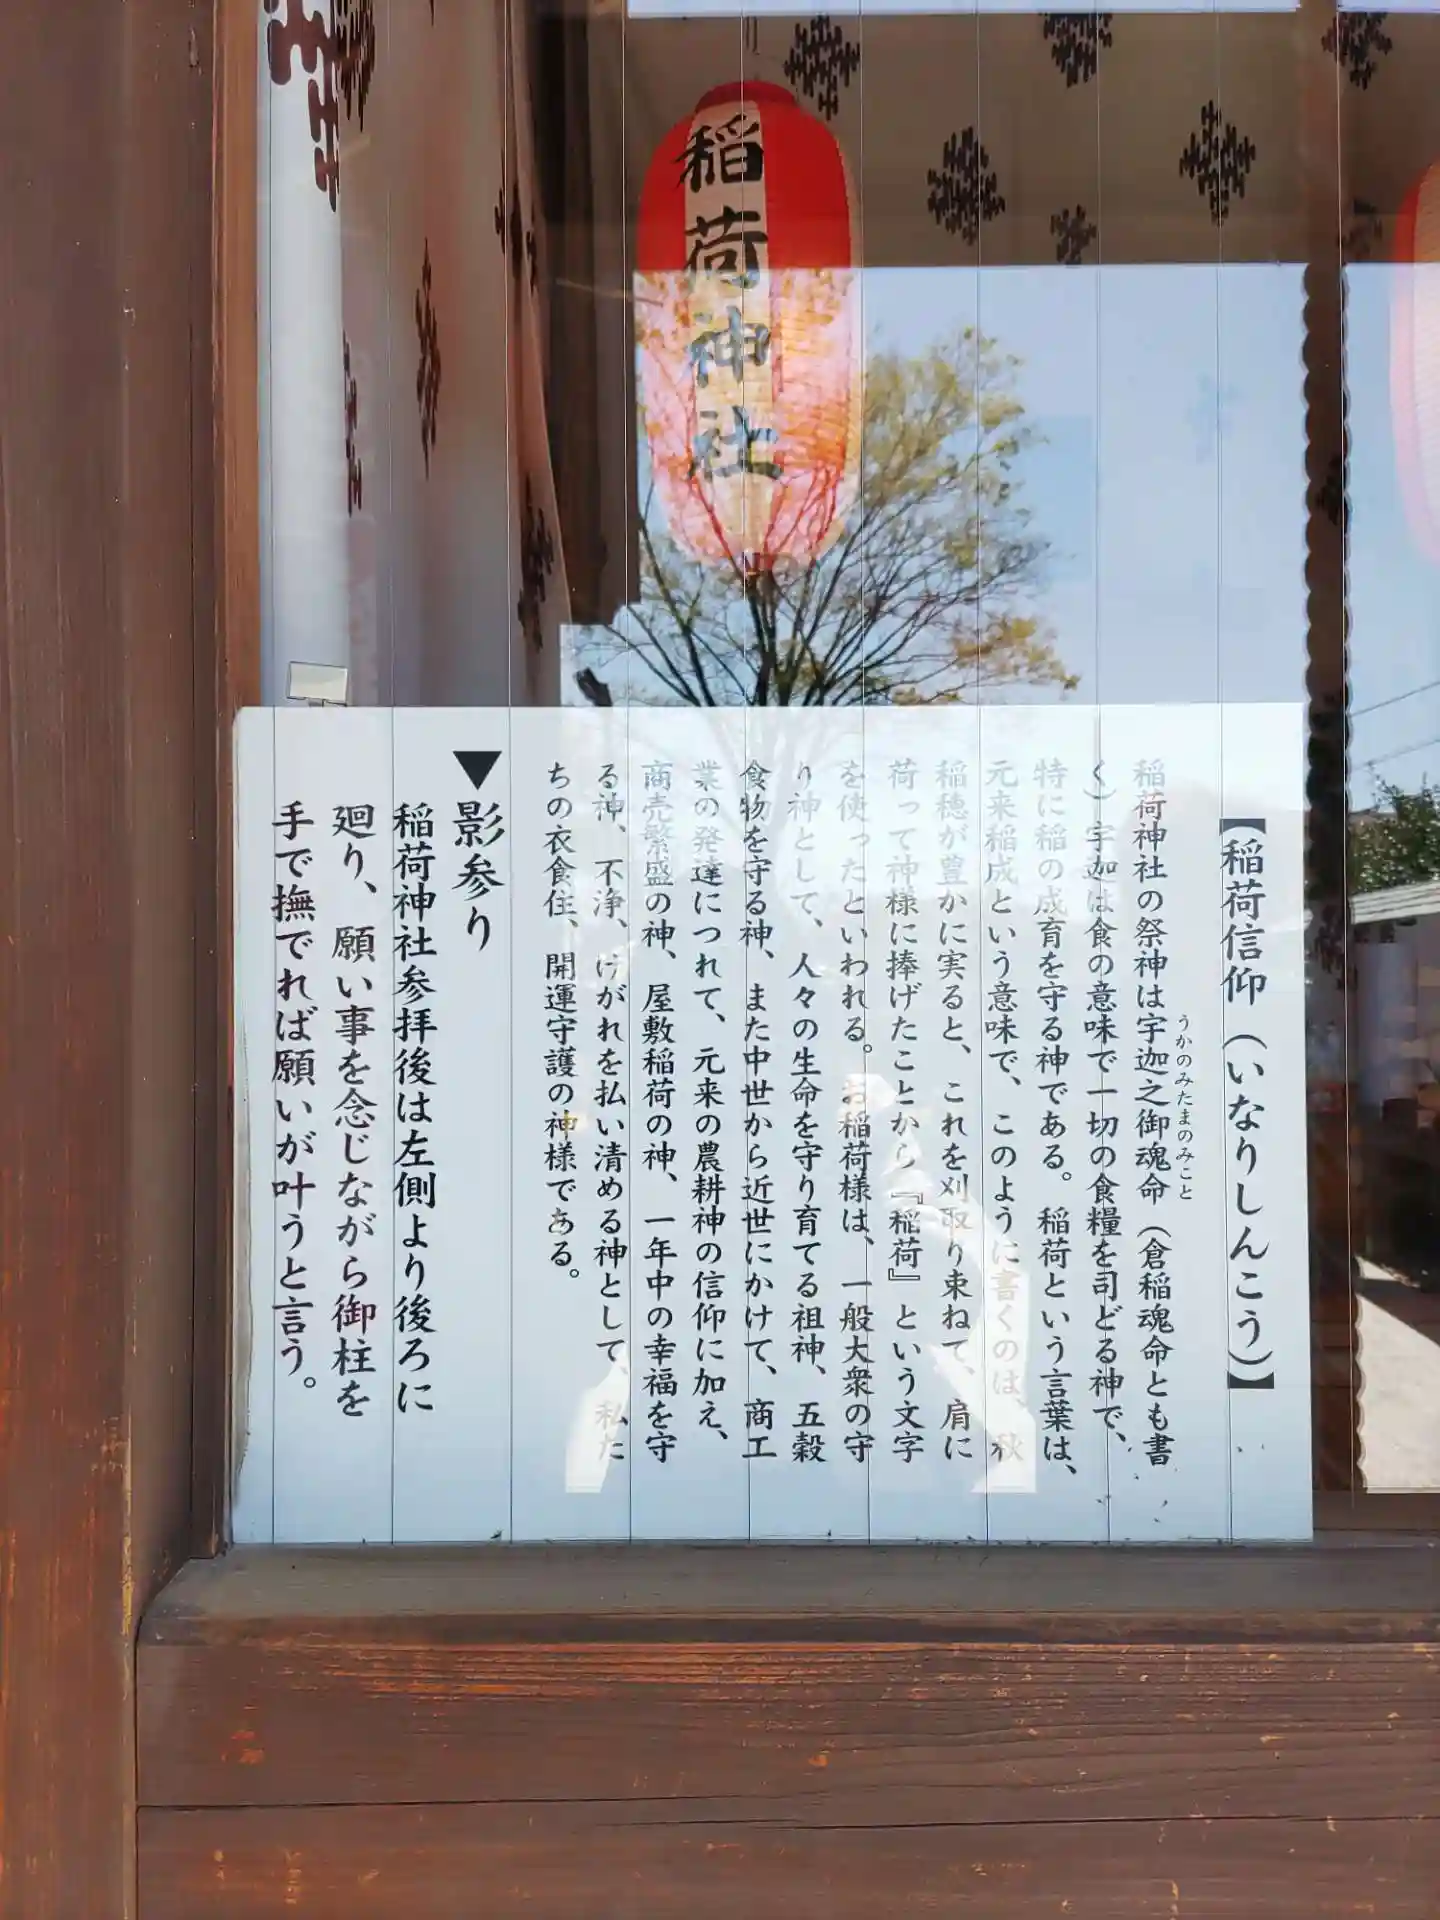 稲荷神社
【稲荷信仰（いなりしんこう）】
稲荷神社の祭神は宇迦之御魂命（倉稲魂命とも書
うかのみたまのみこと
く）宇迦は食の意味で一切の食糧を司どる神で、
特に稲の成育を守る神である。稲荷という言葉は、
元来稲成という意味で、このように書くのは、秋
稲穂が豊かに実ると、これを刈取り束ねて、肩に
荷って神様に捧げたことから『稲荷』という文字
を使ったといわれる。お稲荷様は、一般大衆の守
り神として、人々の生命を守り育てる祖神、五穀
食物を守る神、また中世から近世にかけて、商工
業の発達につれて、元来の農耕神の信仰に加え、
商売繁盛の神、屋敷稲荷の神、一年中の幸福を守
る神、不浄、けがれを払い清める神として、私た
ちの衣食住、開運守護の神様である。
▼影参り
稲荷神社参拝後は左側より後ろに
廻り、願い事を念じながら御柱を
手で撫でれば願いが叶うと言う。